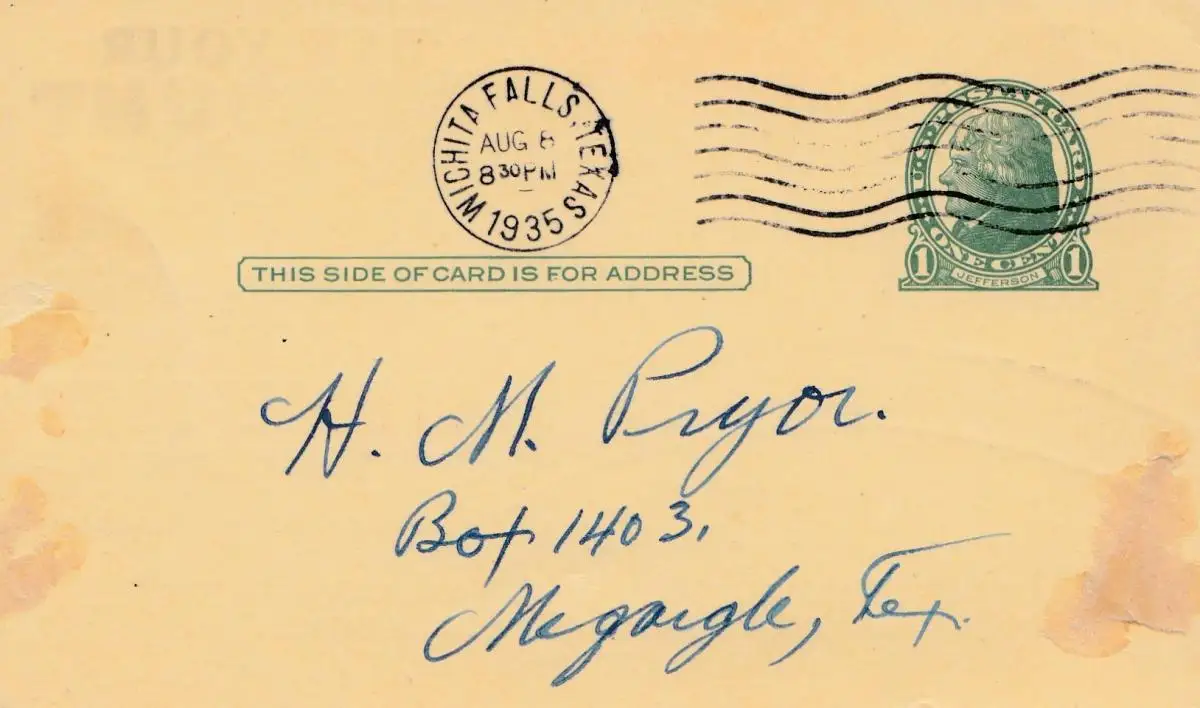 WICHITA FALLS, TEXAS
AUG 8
8 30 PM
1935
U.S. POSTAL CARD
ONE CENT
1 JEFFERSON 1
THIS SIDE OF CARD IS FOR ADDRESS
H. M. Pryor.
Box 1403.
Megargle, Tex.